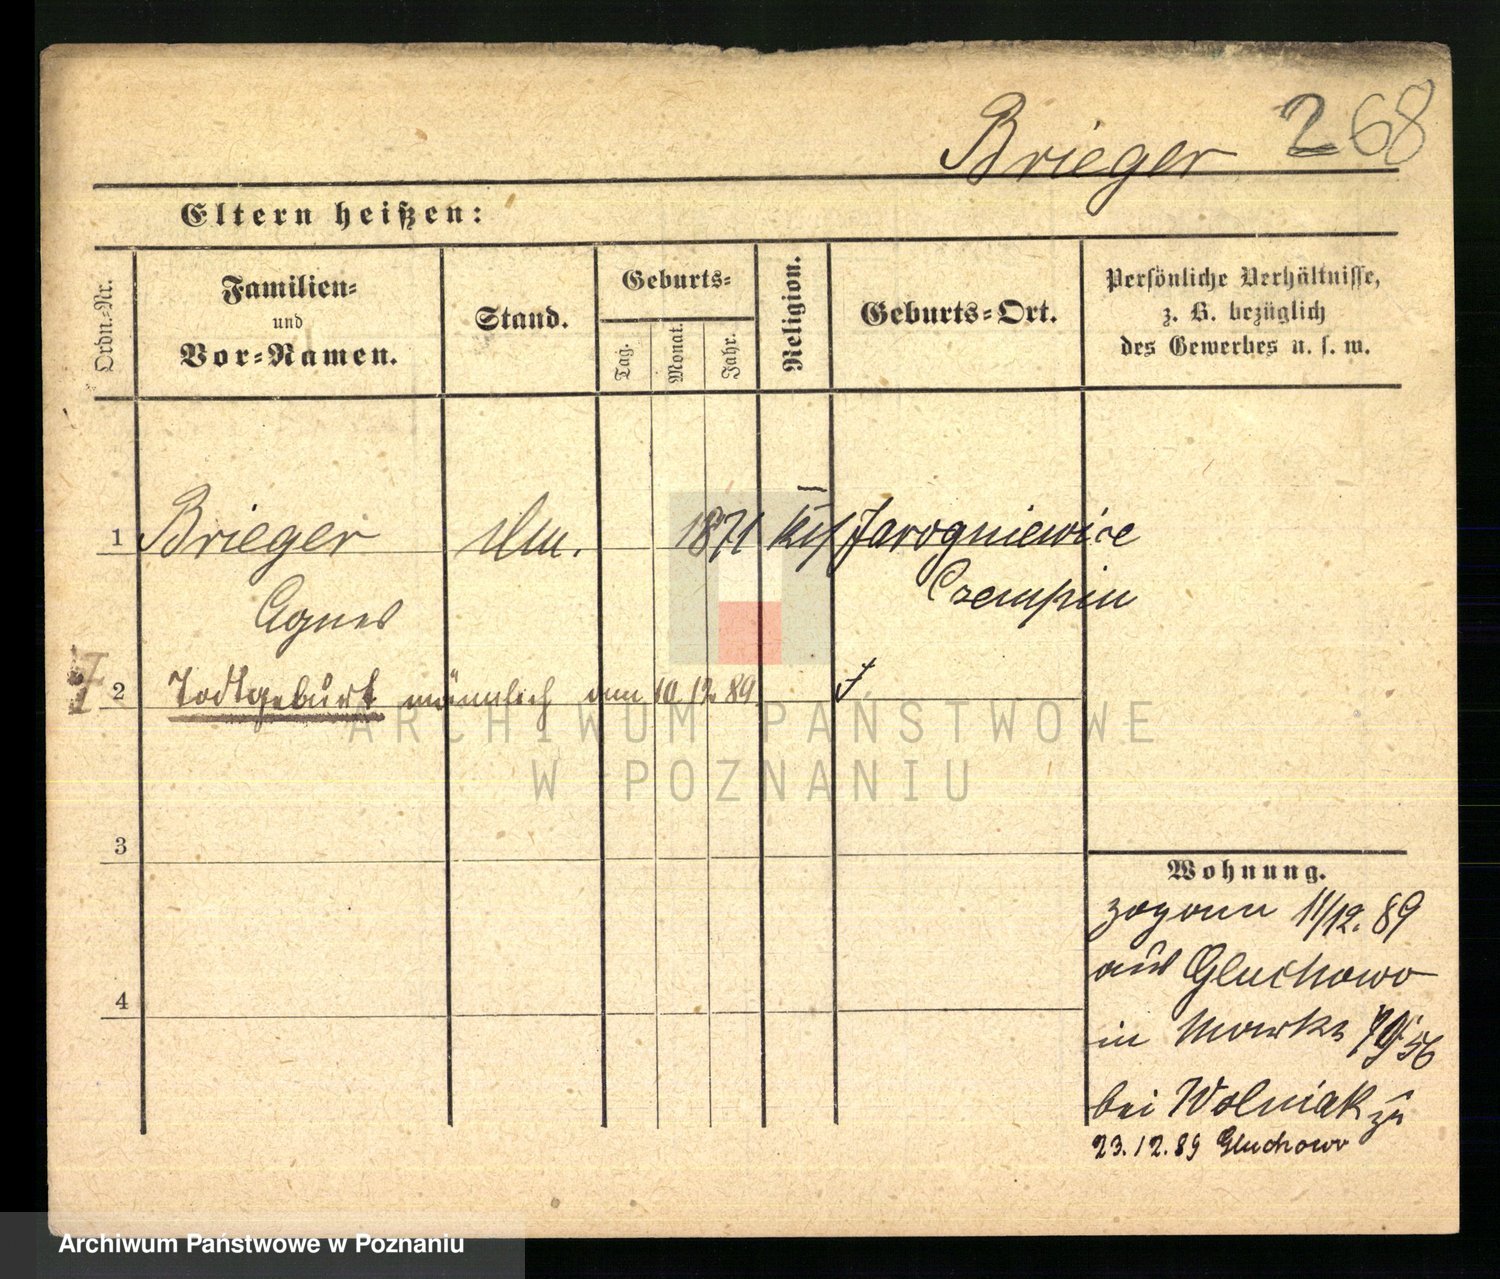 Brieger 268
Eltern heißen:
Ordn.-Nr.
Familien-
und
Vor-Namen.
Stand.
Geburts-
Tag.
Monat.
Jahr.
Religion.
Geburts-Ort.
Persönliche Verhältnisse,
z. B. bezüglich
des Gewerbes u. s. w.
1 Brieger 1871 Jarogniewice
Agnes Czempin
2 Todtgeburt männlich am 10.12.89
3
4
Wohnung.
zogann 11/12.89
aus Gluchowo
in Markt
bei Wolniak zu
23.12.89 Gluchowo
ARCHIWUM PAŃSTWOWE
W POZNANIU
Archiwum Państwowe w Poznaniu